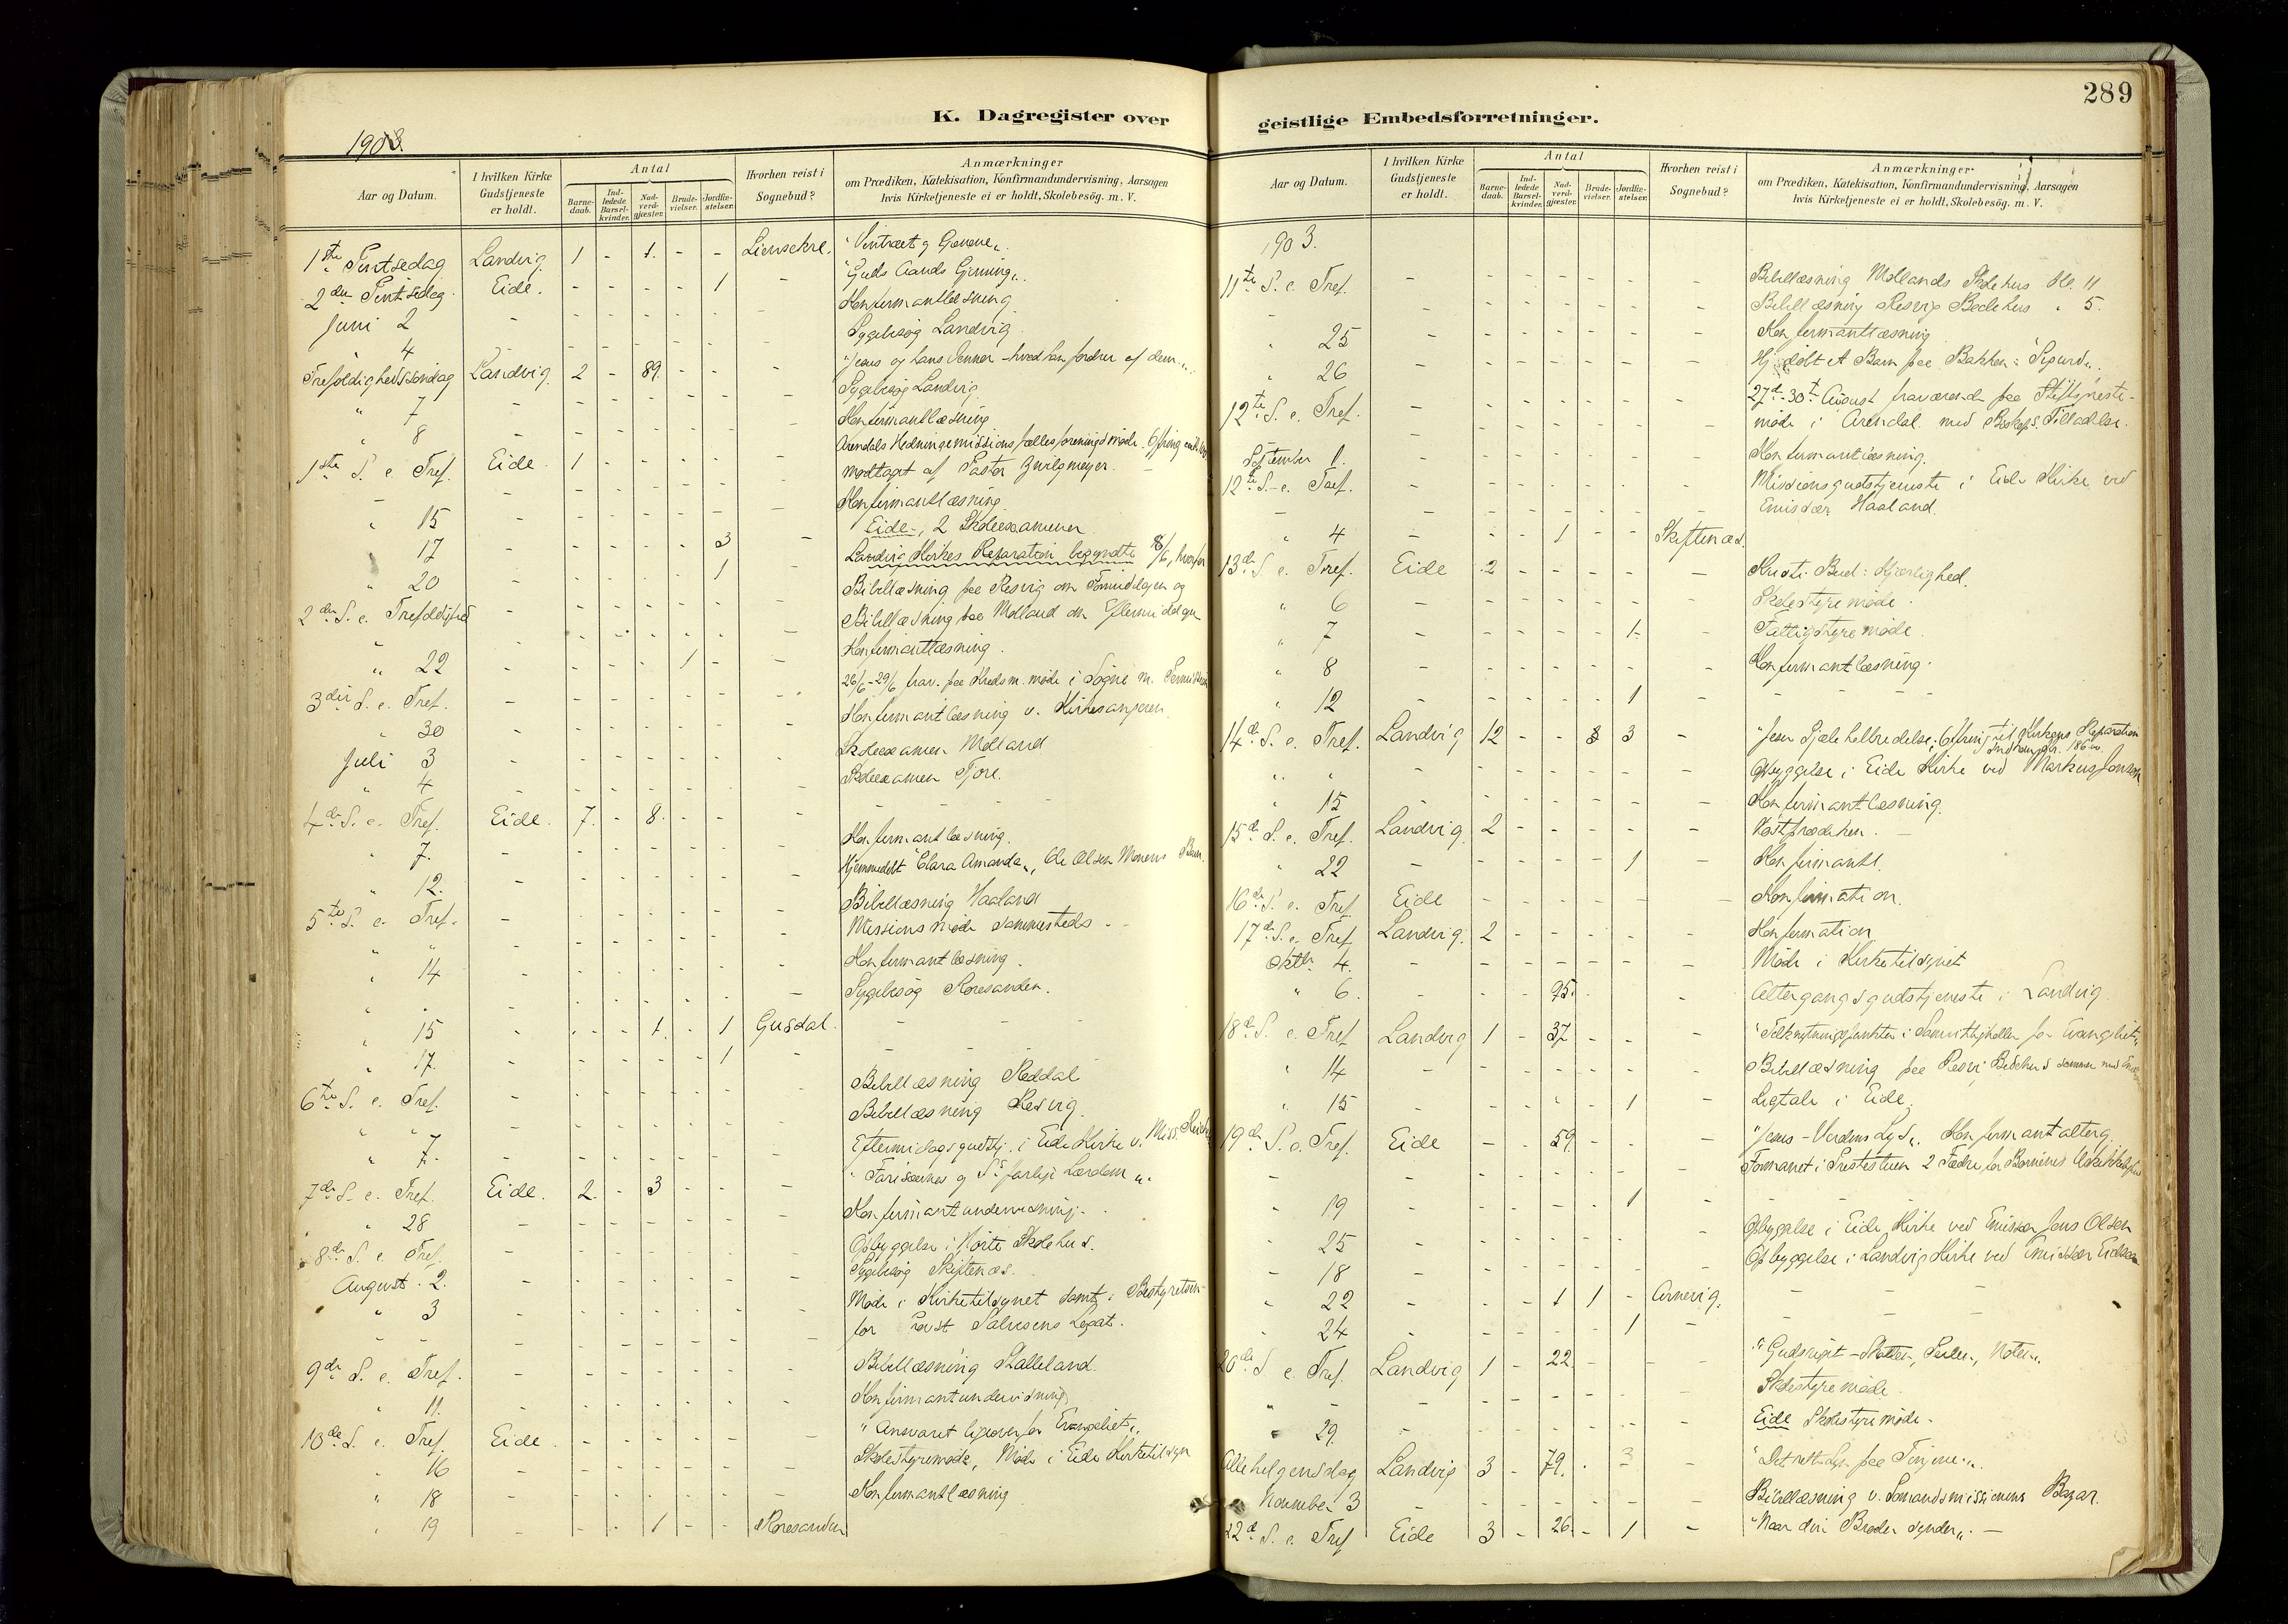 289
K. Dagregister over
geistlige Embedsforretninger.
1903.
Aar og Datum.
I hvilken Kirke Gudstjeneste er holdt.
Antal
Barne-daab.
Ind-ledede Barsel-kvinder.
Nad-verd-gjæster.
Brude-vielser.
Jordfæ-stelser.
Hvorhen reist i Sognebud?
Anmærkninger
om Prædiken, Katekisation, Konfirmandundervisning, Aarsagen
hvis Kirketjeneste ei er holdt, Skolebesög. m. V.
1ste Pintsedag Landvig 1 - 1. - -
2den Pintsedag Eide. - - - - 1 "Guds Aands Gjerning".
Juni 2 - - - - - - - Konfirmantlæsning
4 - - - - - - Sygebesøg Landvig.
Trefoldighedssøndag Landvig. 2 - 89. - - - "Jesus og hans Venner - hvad han fordrer af dem".
" 7 - - - - - - - Sygebesøg Landvig.
" 8 - - - - - - - Konfirmantlæsning
1ste S. e. Tref. Eide. 1 - - - - - Arendals Hedningemissions fællesforeningsmøde.
- - - - - - - Modtaget af Pastor Zwilgmeyer.
" 15 - - - - - - - Konfirmantlæsning.
" 17 - - - - - 3 - Eide, 2 Skoleexamener
" 20 - - - - - 1 - Landvig Kirkes Reparation begyndte 8/6, hvorfor
2den S. e. Trefoldighed - - - - - - Bibellæsning paa Resvig om Formiddagen og
" - - - - - - Bibellæsning paa Molland om Eftermiddagen
" 22 - - - - 1 - - Konfirmantlæsning.
3die S. e. Tref. - - - - - - 26/6-29/6 frav. paa Kredsm. møde i Søgne m.
" 30 - - - - - - - Konfirmantlæsning v. Kirkesangeren.
Juli 3 - - - - - - - Skoleexamen Molland
" 4 - - - - - - - Skoleexamen Fjøre.
4de S. e. Tref. Eide. 7. - 8. - - - -
" 7. - - - - - - - Konfirmantlæsning.
" 12. - - - - - - - Hjemmedøbt "Clara Amanda", Ole Olsen Monens Barn.
5te S. e. Tref. - - - - - - - Bibellæsning Haaland
" " - - - - - - - Missionsmøde sammesteds.
" 14 - - - - - - - Konfirmantlæsning.
" - - - - - - - Sygebesøg Roresanden.
" 15 - - - 1. - 1 Gusdal. -
" 17. - - - - - 1 - -
6te S. e. Tref. - - - - - - - Bibellæsning Reddal
" " - - - - - - - Bibellæsning Resvig.
" 7. - - - - - - - Eftermidagsgudstj. i Eide Kirke v. Miss.
7de S. e. Tref. Eide. 2. - 3 - - - "Farisæernes og Ss farlige Lærdom".
" 28 - - - - - - - Konfirmantundervisning.
8de S. e. Tref. - - - - - - - Opbyggelse i Hørte Skolehus.
August 2. - - - - - - - Sygebesøg Skiftenæs.
" 3 - - - - - - - Møde i Kirketilsynet samt i Bestyrelsen
- - - - - - - for Provst Salvesens Legat.
9de S. e. Tref. - - - - - - - Bibellæsning Kalleland.
" 11. - - - - - - - Konfirmantundervisning
10de S. e. Tref. Eide. - - - - - - "Ansvaret ligeoverfor Evangeliet".
" 16 - - - - - - - Skolestyremøde, Møde i Eide Kirketilsyn
" 18 - - - - - - - Konfirmantlæsning
" 19 - - - 1 - - Roresanden
Aar og Datum.
I hvilken Kirke Gudstjeneste er holdt.
Antal
Barne-daab.
Ind-ledede Barsel-kvinder.
Nad-verd-gjæster.
Brude-vielser.
Jordfæ-stelser.
Hvorhen reist i Sognebud?
Anmærkninger
om Prædiken, Katekisation, Konfirmandundervisning, Aarsagen
hvis Kirketjeneste ei er holdt, Skolebesög. m. V.
1903.
11te S. e. Tref. - - - - - - - Bibellæsning Mollands Skolehus Kl. 11
- - - - - - - Bibellæsning Resvig Bedehus " 5.
" 25 - - - - - - - Konfirmantlæsning
" 26 - - - - - - - Hj.døbt et Barn paa Bakken: "Sigurd".
12te S. e. Tref. - - - - - - - 27de-30te August fraværende paa Stiftspreste-
møde i Arendal med Biskops Tilladelse.
September 1. - - - - - - - Konfirmantlæsning.
12te S. e. Tref. - - - - - - - Missionsgudstjeneste i Eide Kirke ved
Emissær Haaland.
" 4 - - - 1 - - Skiftenæs.
13de S. e. Tref. Eide 2 - - - - - Kristi Bud: Kjærlighed.
" 6 - - - - - - - Skolestyremøde.
" 7 - - - - - 1 - Fattigstyremøde.
" 8 - - - - - - - Konfirmantlæsning.
" 12 - - - - - 1 - -
14de S. e. Tref. Landvig 12 - - 3 3 - "Jesu Sjæle helbredelse; Ofring til Kirkens Reparation
" " - - - - - - - Opbyggelse i Eide Kirke ved Markus Jonson
" 15 - - - - - - - Konfirmantlæsning.
15de S. e. Tref. Landvig 2 - - - - - Høstprædiken. -
" 22 - - - - - 1 - Konfirmantl.
16de S. e. Tref. Eide - - - - - - Konfirmation.
17de S. e. Tref. Landvig. 2 - - - - - Konfirmation
Oktbr. 4. - - - - - - - Møde i Kirketilsynet
" 6. - - - 95. - - - Altergangsgudstjeneste i Landvig.
18de S. e. Tref. Landvig 1 - 37 - - -
" 14 - - - - - - - Bibellæsning paa Resvig Bedehus sammen med
" 15 - - - - - 1 - Ligtale i Eide.
19de S. e. Tref. Eide - - 59. - - - "Jesus - Verdens Lys". Konfirmantalterg.
- - - - - - - Formanet i Prestestuen 2 Fædre for Børnenes
" 19 - - - - - 1 - -
" 25 - - - - - - - Opbyggelse i Eide Kirke ved Emissær Jens Olsen
" 18 - - - - - - - Opbyggelse i Landvig Kirke ved Emissær
" 22 - - - 1 1 - Arnevig. -
" 24 - - - - - 1 - -
20de S. e. Tref. Landvig 1 - 22. - - - "Gudsriget - Skatten, Perlen, Noten".
" - - - - - - - Skolestyremøde.
" 29. - - - - - - - Eide Skolestyremøde.
Allehelgensdag Landvig 3 - 79. - 3 -
November 3 - - - - - - - Bibellæsning v. Sømandsmissionens Bazar.
22de S. e. Tref. Eide 3 - 26. - 1 - "Naar din Broder synder". -